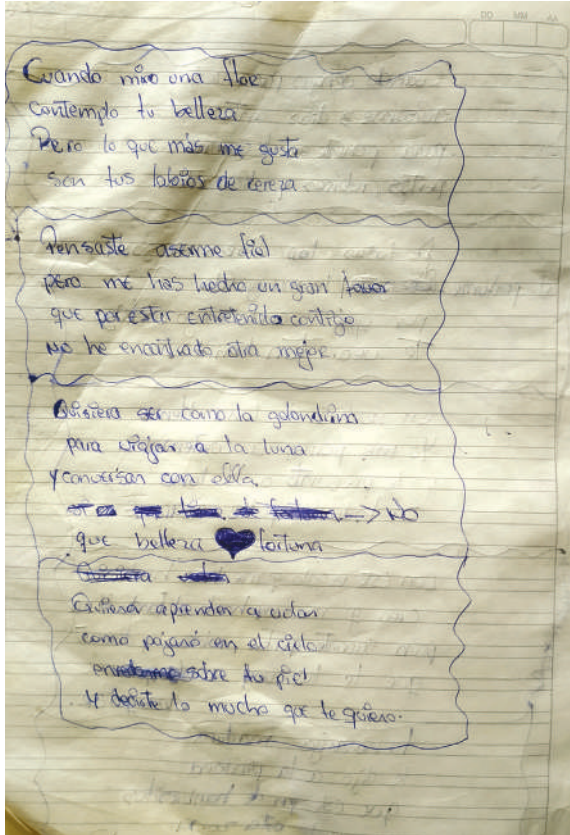 AA MM DD
Cuando miro una flor
contemplo tu belleza
Pero lo que más me gusta
son tus labios de cereza
Pensaste aserme fiel
pero me has hecho un gran favor
que por estar entretenido contigo
No he encontrado otra mejor.
Quisiera ser como la golondrina
para viajar a la luna
y conversar con ella
No
que belleza fortuna
Quisiera
Quisiera aprender a volar
como pajaro en el cielo
sobre tu piel
Y decirte lo mucho que te quiero.